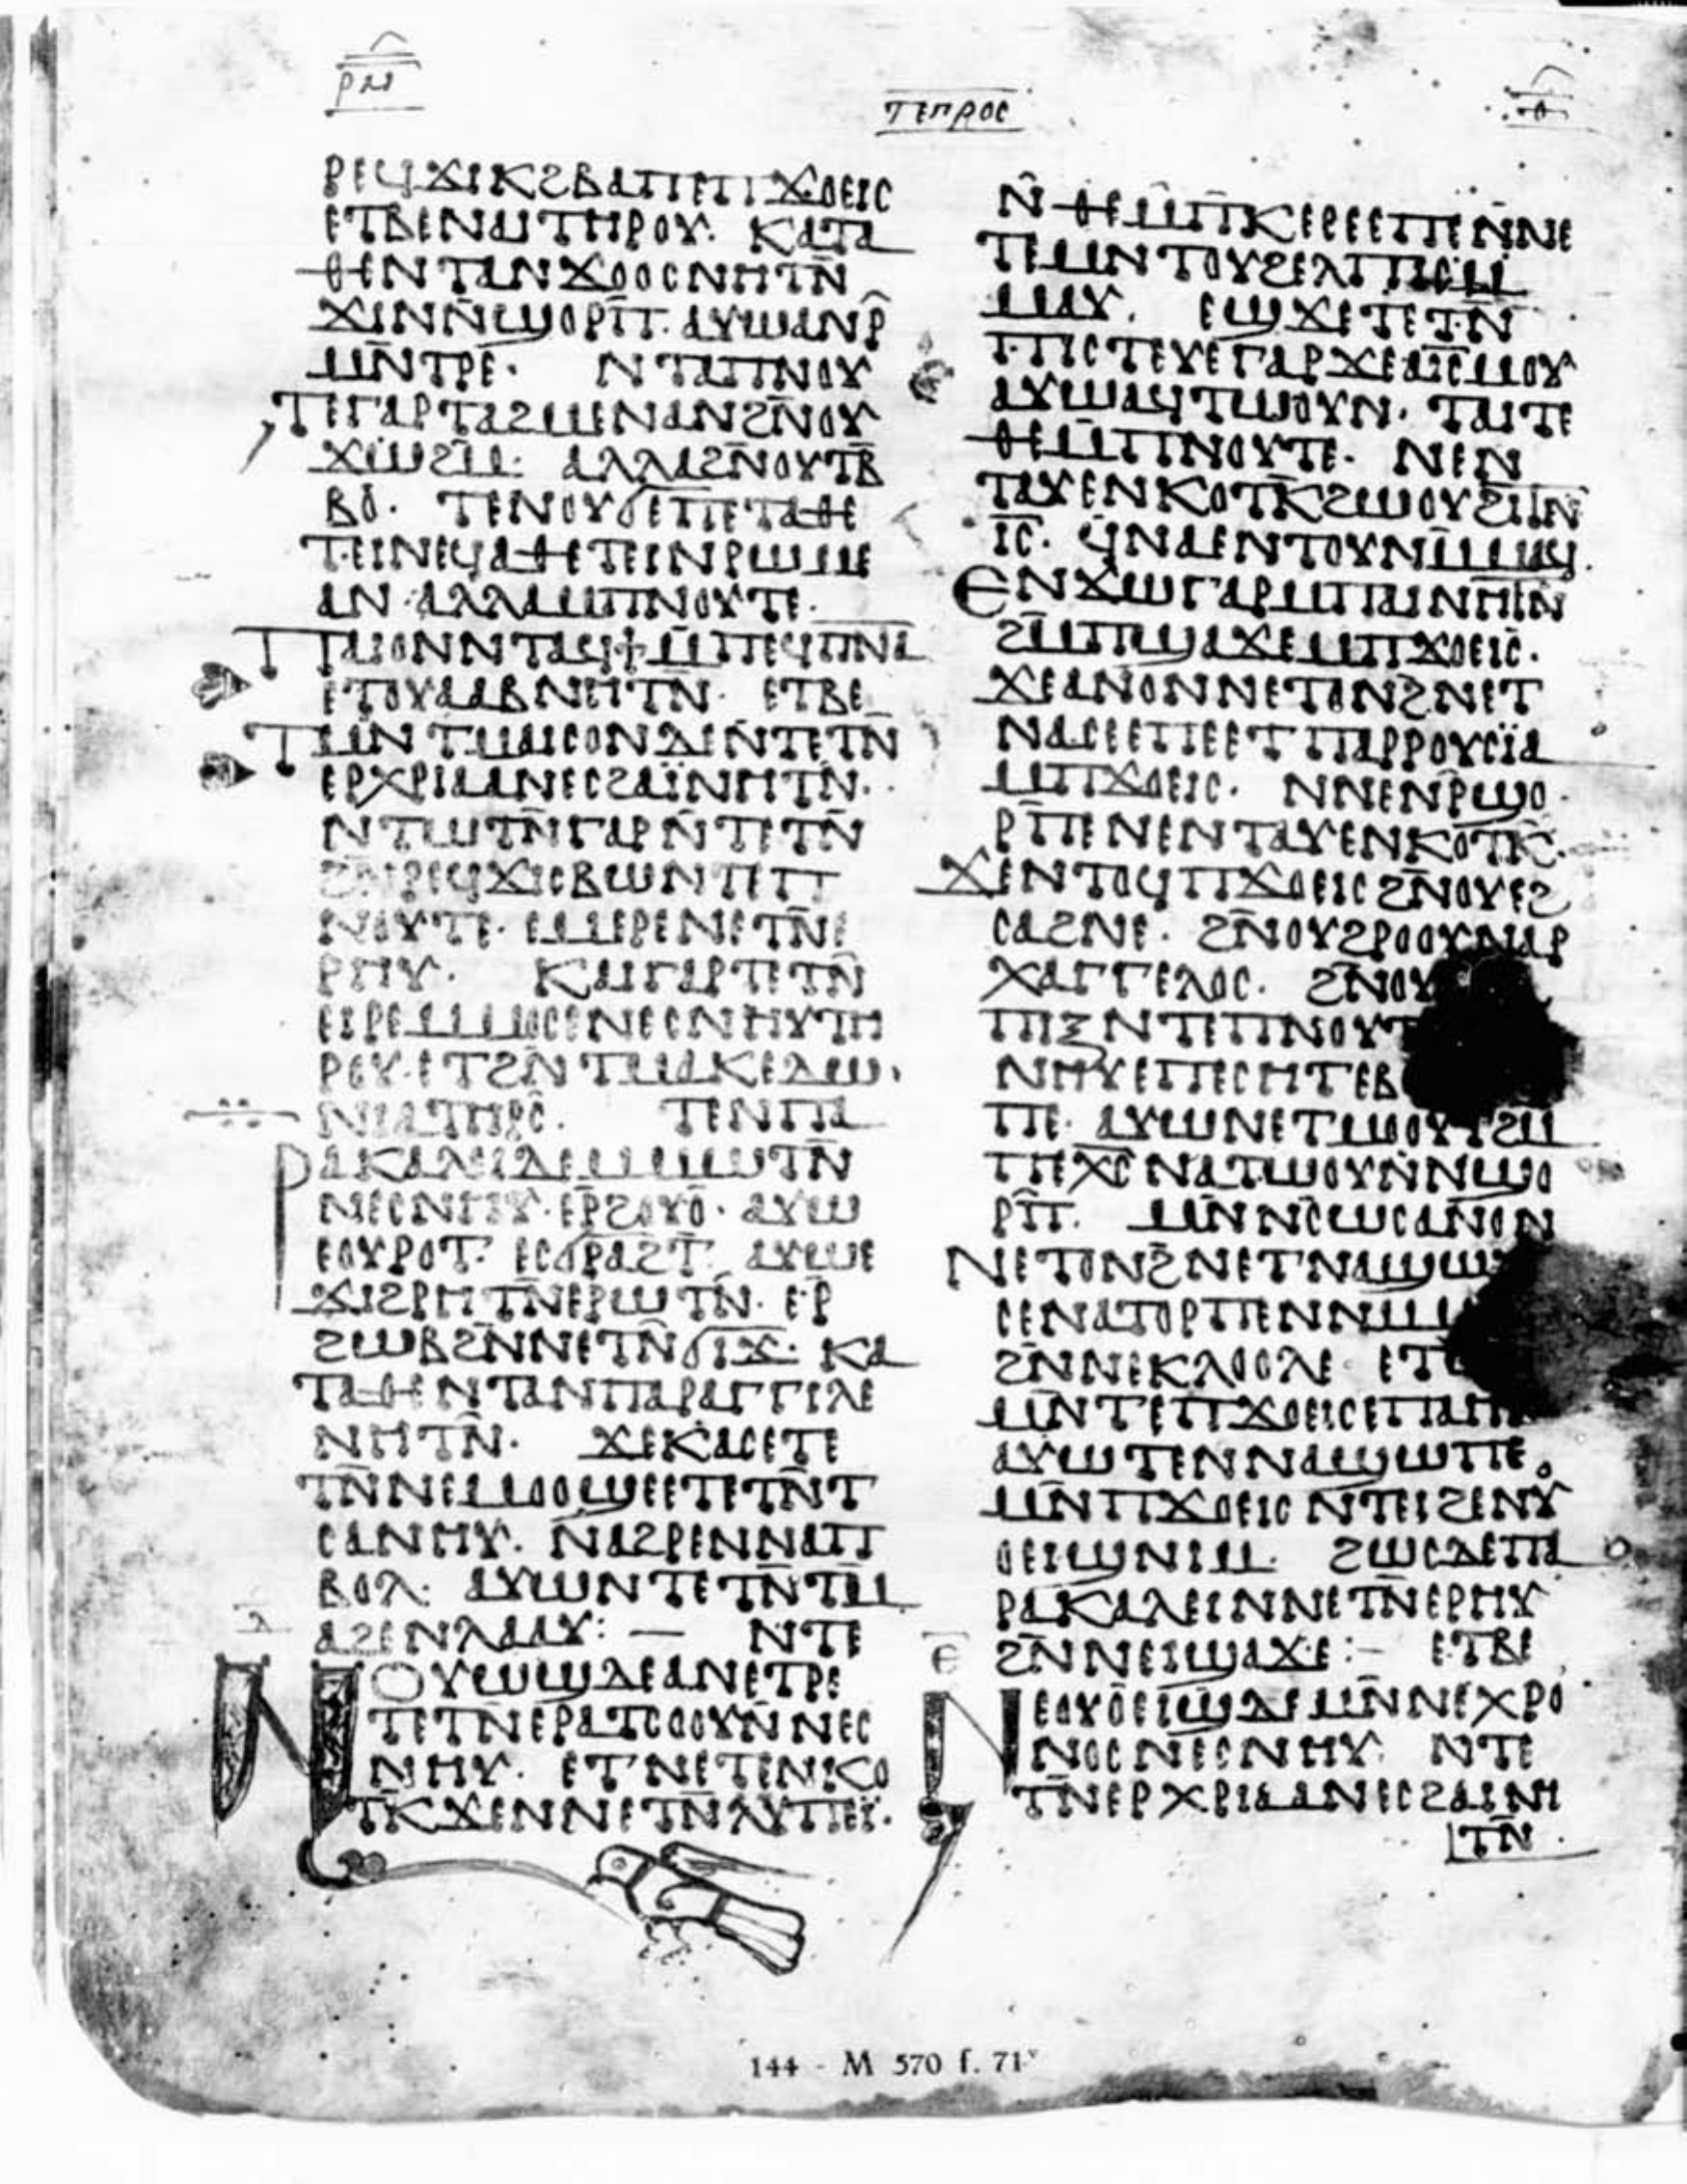 ⲣⲙ
ⲧⲉⲡⲣⲟⲥ
ⲣⲉϥϫⲓⲕϩⲃⲁⲡⲉⲡϫⲟⲉⲓⲥ
ⲉⲧⲃⲉⲛⲁⲓⲧⲏⲣⲟⲩ· ⲕⲁⲧⲁ
ⲑⲉⲛⲧⲁⲛϫⲟⲟⲥⲛⲏⲧⲛ̄
ϫⲓⲛⲛ̄ϣⲟⲣⲡ̄· ⲁⲩⲱⲁⲛⲣ̄
ⲙⲛ̄ⲧⲣⲉ· ⲛⲧⲁⲡⲛⲟⲩ
ⲧⲉⲅⲁⲣⲧⲁϩⲙⲉⲛⲁⲛϩⲛ̄ⲟⲩ
ϫⲱϩⲙ· ⲁⲗⲗⲁϩⲛ̄ⲟⲩⲧⲃ̄
ⲃⲟ· ⲧⲉⲛⲟⲩϭⲉⲡⲉⲧⲁⲑⲉ
ⲧⲉⲓⲛⲉϥⲁⲑⲉⲧⲉⲓⲛⲣⲱⲙⲉ
ⲁⲛ·ⲁⲗⲗⲁⲙⲡⲛⲟⲩⲧⲉ·
ⲡⲁⲓⲟⲛⲛⲧⲁϥϯⲙ̄ⲡⲉϥⲡⲛⲁ̄
ⲉⲧⲟⲩⲁⲁⲃⲛⲏⲧⲛ̄· ⲉⲧⲃⲉ
ⲧⲙⲛⲧⲙⲁⲓⲥⲟⲛⲇⲉⲛ̄ⲧⲉⲧⲛ̄
ⲉⲣⲭⲣⲓⲁⲁⲛⲉⲥϩⲁⲓ̈ⲛⲏⲧⲛ̄·
ⲛⲧⲱⲧⲛ̄ⲅⲁⲣⲛ̄ⲧⲉⲧⲛ̄
ϩⲛ̄ⲣⲉϥϫⲓⲥⲃⲱⲛⲧⲉⲡ
ⲛⲟⲩⲧⲉ· ⲉⲙⲉⲣⲉⲛⲉⲧⲛ̄ⲉ
ⲣⲏⲩ· ⲕⲁⲓⲅⲁⲣⲧⲉⲧⲛ̄
ⲉⲓⲣⲉⲙⲙⲟⲥⲉⲛⲉⲥⲛⲏⲩⲧⲏ
ⲣⲟⲩ·ⲉⲧϩⲛ̄ⲧⲙⲁⲕⲉⲇⲱ
ⲛⲓⲁⲧⲏⲣⲥ̄· ⲧⲉⲛⲡⲁ
ⲣⲁⲕⲁⲗⲉⲓⲇⲉⲙⲙⲱⲧⲛ̄
ⲛⲉⲥⲛⲏⲩ·ⲉⲣ̄ϩⲟⲩⲟ· ⲁⲩⲱ
ⲉⲟⲩⲣⲟⲧ· ⲉⲥϭⲣⲁϩⲧ· ⲁⲩⲱⲉ
ϫⲓϩⲣⲏⲧⲛ̄ⲉⲣⲱⲧⲛ̄· ⲉⲣ
ϩⲱⲃϩⲛ̄ⲛⲉⲧⲛ̄ϭⲓϫ· ⲕⲁ
ⲧⲁⲑⲉⲛⲧⲁⲛⲡⲁⲣⲁⲅⲅⲓⲗⲉ
ⲛⲏⲧⲛ̄· ϫⲉⲕⲁⲥⲉⲧⲉ
ⲧⲛ̄ⲛⲉⲙⲟⲟϣⲉⲉⲧⲉⲧⲛ̄ⲧ
ⲥⲁⲛⲏⲩ· ⲛ̄ⲁϩⲣⲉⲛⲛⲁⲡ
ⲃⲟⲗ· ⲁⲩⲱⲛⲧⲉⲧⲛ̄ⲧⲙ̄
ⲁϩⲉⲛⲗⲁⲁⲩ:— ⲛⲧⲉ
ⲛⲟⲩⲱϣⲇⲉⲁⲛⲉⲧⲣⲉ
ⲧⲉⲧⲛⲉⲣⲁⲧⲥⲟⲟⲩⲛ̄ⲛⲉⲥ
ⲛⲏⲩ· ⲉⲧⲛⲉⲧⲉⲛⲕⲟ
ⲧⲕ̄ϫⲉⲛⲛⲉⲧⲛ̄ⲗⲩⲡⲉⲓ̈·
ⲛ̂ⲑⲉⲙ̄ⲡ̄ⲕⲉⲣⲉⲉⲡⲉⲛ̄ⲛⲉ
ⲧⲉⲙⲛⲧⲟⲩϩⲉⲗⲡⲓⲥⲙ̄
ⲙⲁⲩ· ⲉϣϫⲉⲧⲉⲧⲛ̄
ⲡⲓⲥⲧⲉⲩⲉⲅⲁⲣϫⲉⲁⲓⲥ̄ⲙⲟⲩ
ⲁⲩⲱⲁϥⲧⲱⲟⲩⲛ· ⲧⲁⲓⲧⲉ
ⲑⲉⲙ̄ⲡⲛⲟⲩⲧⲉ· ⲛⲉⲛ
ⲧⲁⲩⲉⲛⲕⲟⲧⲕ̄ϩⲱⲟⲩϩⲓⲧⲛ̄
ⲓⲥ̄· ϥⲛⲁⲉⲛⲧⲟⲩⲛⲙ̄ⲙⲁϥ
ⲉⲛϫⲱⲅⲁⲣⲙⲡⲁⲓⲛⲏⲧⲛ̄
ϩⲙ̄ⲡϣⲁϫⲉⲙⲡϫⲟⲉⲓⲥ·
ϫⲉⲁⲛⲟⲛⲛⲉⲧⲟⲛϩ̄ⲛⲉⲧ
ⲛⲁⲥⲉⲉⲡⲉⲉⲧⲡⲁⲣⲣⲟⲩⲥⲓ̈ⲁ
ⲙⲡϫⲟⲉⲓⲥ· ⲛⲛⲉⲛⲣ̄ϣⲟ
ⲣⲡ̄ⲉⲛⲉⲛⲧⲁⲩⲉⲛⲕⲟⲧⲕ̄·
ϫⲉⲛⲧⲟϥⲡϫⲟⲉⲓⲥϩⲛ̄ⲟⲩⲉϩ
ⲥⲁϩⲛⲉ· ϩⲛ̄ⲟⲩϩⲣⲟⲟⲩⲛⲁⲣ
ⲭⲁⲅⲅⲉⲗⲟⲥ· ϩⲛ̄ⲟⲩ
ⲡⲓⲝⲛⲧⲉⲡⲛⲟⲩⲧ
ⲛⲏⲩⲉⲡⲉⲥⲏⲧⲉⲃ
ⲡⲉ· ⲁⲩⲱⲛⲉⲧⲙⲟⲟⲩⲧϩⲙ
ⲡⲉⲭⲥ̄ⲛⲁⲧⲱⲟⲩⲛⲛϣⲟ
ⲣⲡ̄· ⲙⲛⲛⲥ̄ⲱⲥⲁⲛⲟⲛ
ⲛⲉⲧⲟⲛϩ̄ⲛⲉⲧⲛⲁϣⲱ
ⲥⲉⲛⲁⲧⲟⲣⲡⲉⲛⲛⲙ
ϩⲛ̄ⲛⲉⲕⲗⲟⲟⲗⲉ· ⲉⲧ
ⲙⲛ̄ⲧⲉⲡϫⲟⲉⲓⲥⲉⲡⲁⲏ
ⲁⲩⲱⲧⲉⲛⲛⲁϣⲱⲡⲉ
ⲙⲛ̄ⲡϫⲟⲉⲓⲥⲛⲧⲉⲓϩⲉⲛⲩ
ⲟⲉⲓϣⲛⲓⲙ· ϩⲱⲥⲇⲉⲡⲁ
ⲣⲁⲕⲁⲗⲉⲓⲛⲛⲉⲧⲛ̄ⲉⲣⲏⲩ
ϩⲛ̄ⲛⲉⲓϣⲁϫⲉ:— ⲉⲧⲃⲉ
ⲛⲉⲟⲩⲟⲉⲓϣⲇⲉⲙⲛ̄ⲛⲉⲭⲣⲟ
ⲛⲟⲥⲛⲉⲥⲛⲏⲩ· ⲛⲧⲉ
ⲧⲛ̄ⲉⲣⲭⲣⲓⲁⲁⲛⲉⲥϩⲁⲓⲛⲏ
ⲧⲛ̄·
144 - M 570 f. 71ᵛ